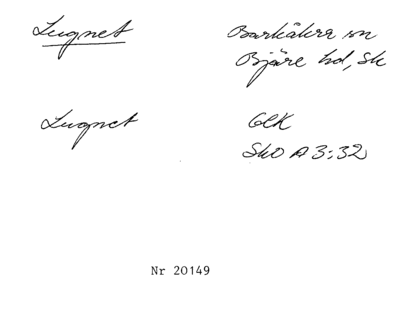 Lugnet
Barkåkra sn
Bjäre hd, Sk
Lugnet
GEK
SkO A 3:32
Nr 20149